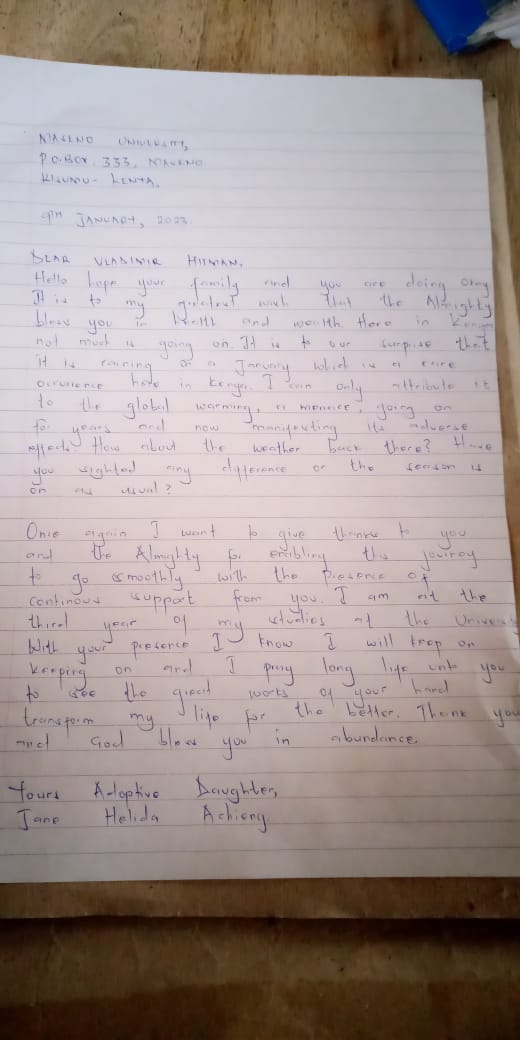 MASENO UNIVERSITY,
P.O.BOX. 333, MASENO
KISUMU - KENYA.
9TH JANUARY, 2023.
DEAR VLADIMIR
Hello hope your family and you are doing okay
It is to my greatest wish that the Almighty
bless you in health and wealth. Here in Kenya
not much is going on. It is to our surprise that
it is raining on a January which is a rare
occurrence here in Kenya. I can only attribute it
to the global warming, a menace, going on
for years and now manifesting its adverse
effects. How about the weather back there? Have
you sighted any difference or the season is
on as usual?
Once again I want to give thanks to you
and the Almighty for enabling this journey
to go smoothly with the presence of
continous support from you. I am at the
third year of my studies at the University
With your presence I know I will keep on
keeping on and I pray long life unto you
to see the great works of your hand
transform my life for the better. Thank you
and God bless you in abundance.
Yours Adoptive Daughter,
Jane Helida Achieng.